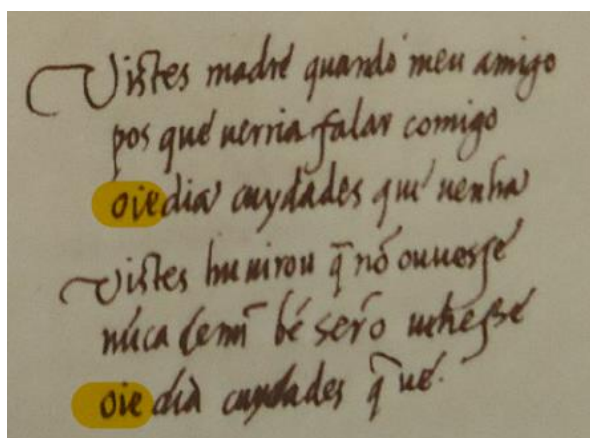 Vistes madre quando meu amigo
pos que uerria falar comigo
oiedia cuydades que uenha
Vistes hu mirou q̄ nō ouuesse
nūca de mī bē serō uehesse
oie dia cuydades q̄ ue.